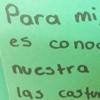 Para mi
es cono
nuestra
las costum